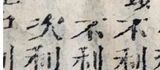 不利
不利
次利